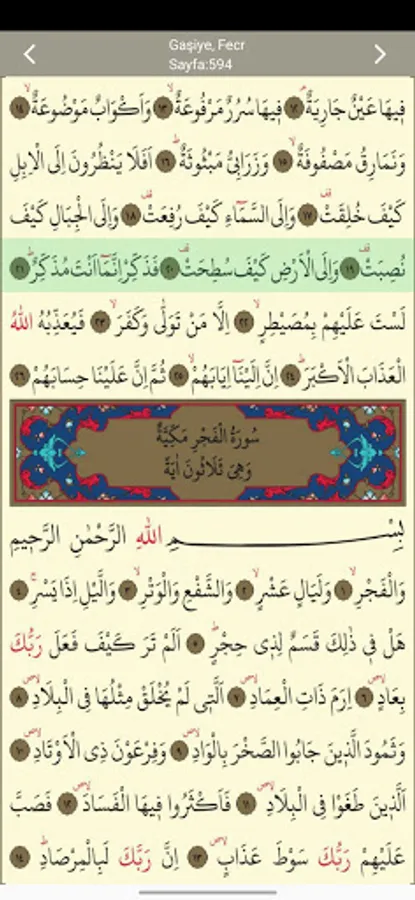 Gaşiye, Fecr
Sayfa:594
فِيهَا عَيْنٌ جَارِيَةٌۢ ﴿١٢﴾ فِيهَا سُرُرٌ مَرْفُوعَةٌۙ ﴿١٣﴾ وَاَكْوَابٌ مَوْضُوعَةٌۙ ﴿١٤﴾
وَنَمَارِقُ مَصْفُوفَةٌۙ ﴿١٥﴾ وَزَرَابِيُّ مَبْثُوثَةٌۜ ﴿١٦﴾ اَفَلَا يَنْظُرُونَ اِلَى الْاِبِلِ
كَيْفَ خُلِقَتْ۠ ﴿١٧﴾ وَاِلَى السَّمَٓاءِ كَيْفَ رُفِعَتْ۠ ﴿١٨﴾ وَاِلَى الْجِبَالِ كَيْفَ
نُصِبَتْ۠ ﴿١٩﴾ وَاِلَى الْاَرْضِ كَيْفَ سُطِحَتْ۠ ﴿٢٠﴾ فَذَكِّرْ اِنَّمَٓا اَنْتَ مُذَكِّرٌۜ ﴿٢١﴾
لَسْتَ عَلَيْهِمْ بِمُصَيْطِرٍۙ ﴿٢٢﴾ اِلَّا مَنْ تَوَلّٰى وَكَفَرَۙ ﴿٢٣﴾ فَيُعَذِّبُهُ اللّٰهُ
الْعَذَابَ الْاَكْبَرَۜ ﴿٢٤﴾ اِنَّ اِلَيْنَٓا اِيَابَهُمْۙ ﴿٢٥﴾ ثُمَّ اِنَّ عَلَيْنَا حِسَابَهُمْ ﴿٢٦﴾
سُورَةُ الْفَجْرِ مَكِّيَّةٌ
وَهِيَ ثَلَاثُونَ اٰيَةً
بِسْمِ اللّٰهِ الرَّحْمٰنِ الرَّحِيمِ
وَالْفَجْرِۙ ﴿١﴾ وَلَيَالٍ عَشْرٍۙ ﴿٢﴾ وَالشَّفْعِ وَالْوَتْرِۙ ﴿٣﴾ وَالَّيْلِ اِذَا يَسْرِۚ ﴿٤﴾
هَلْ فِي ذٰلِكَ قَسَمٌ لِذِي حِجْرٍۜ ﴿٥﴾ اَلَمْ تَرَ كَيْفَ فَعَلَ رَبُّكَ
بِعَادٍۖ ﴿٦﴾ اِرَمَ ذَاتِ الْعِمَادِۖ ﴿٧﴾ اَلَّتِي لَمْ يُخْلَقْ مِثْلُهَا فِي الْبِلَادِۖ ﴿٨﴾
وَثَمُودَ الَّذِينَ جَابُوا الصَّخْرَ بِالْوَادِۖ ﴿٩﴾ وَفِرْعَوْنَ ذِي الْاَوْتَادِۖ ﴿١٠﴾
اَلَّذِينَ طَغَوْا فِي الْبِلَادِۖ ﴿١١﴾ فَاَكْثَرُوا فِيهَا الْفَسَادَۖ ﴿١٢﴾ فَصَبَّ
عَلَيْهِمْ رَبُّكَ سَوْطَ عَذَابٍۖ ﴿١٣﴾ اِنَّ رَبَّكَ لَبِالْمِرْصَادِۜ ﴿١٤﴾